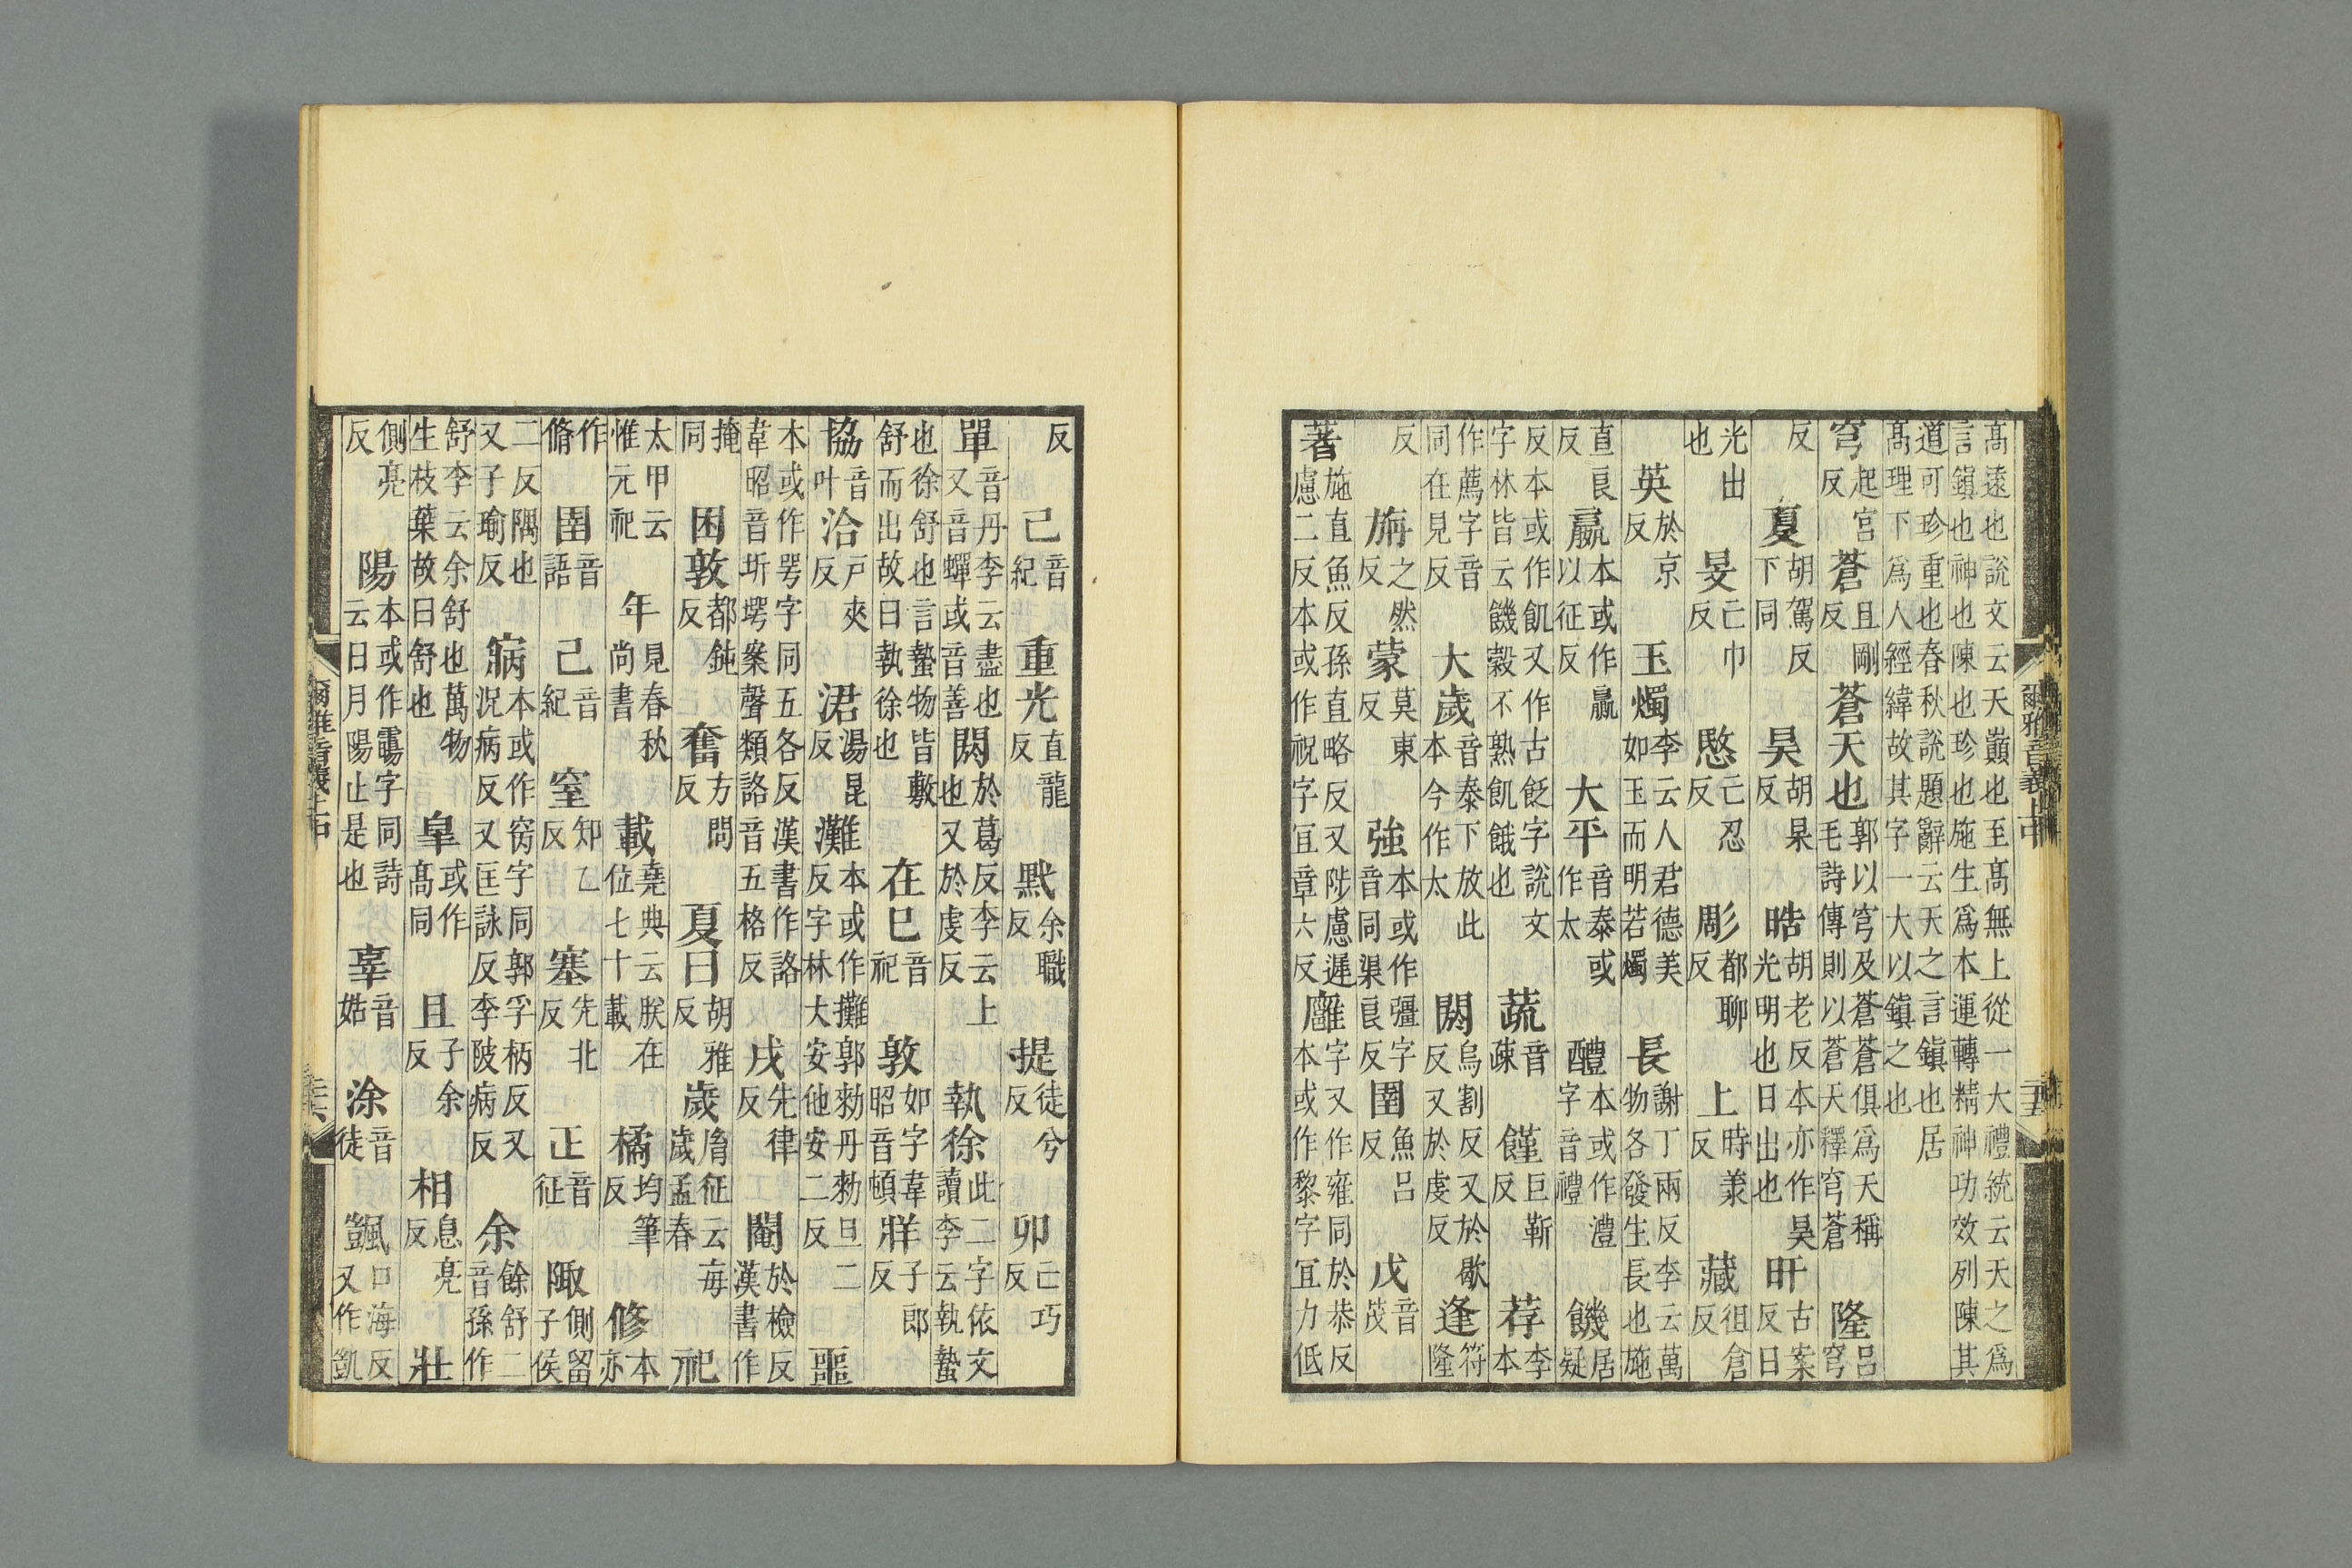 髙遠也說文云天巓也至髙無上從一大禮統云天之爲
言鎮也神也陳也珍也施生爲本運轉精神功效列陳其
道可珍重也春秋說題辭云天之言鎮也居
髙理下爲人經緯故其字一大以鎮之也
穹起宮反 蒼且剛反 蒼天也郭以穹及蒼蒼俱爲天稱毛詩傳則以蒼天釋穹蒼 隆呂穹
反 夏胡駕反下同 昊胡杲反 晧胡老反本亦作昊光明也日出也 旰古案反日
光出也 旻亡巾反 愍亡忍反 彫都聊反 上時羕反 藏徂倉反
英於京反 玉燭李云人君德美如玉而明若燭 長謝丁兩反李云萬物各發生長也施
直良反 嬴本或作贏以征反 大平音泰或作太 醴本或作澧字音禮 饑居疑
反本或作飢又作古飯字說文字林皆云饑穀不熟飢餓也 蔬音疎 饉巨靳反 荐李本
作薦字音同在見反 大歲音泰下放此本今作太 閼烏割反又於歇反又於虔反 逢符隆
反 旃之然反 蒙莫東反 強本或作彊字音同渠良反 圉魚呂反 戊音茂
著施直魚反孫直略反又陟慮遲慮二反本或作祝字宜章六反 雝字又作雍同於恭反本或作黎字宜力低
爾雅音義上中
反 己音紀 重光直龍反 默余職反 提徒兮反 卯亡巧反
單音丹李云盡也又音蟬或音善 閼於葛反李云上也又於虔反 執徐此二字依文讀李云執蟄
也徐舒也言蟄物皆敷舒而出故曰執徐也 在巳音祀 敦如字韋昭音頓 牂子郎反
協音叶 洽戸夾反 涒湯昆反 灘本或作攤郭勑丹勑旦二反字林大安他安二反 噩
本或作咢字同五各反漢書作詻韋昭音圻堮案聲類詻音五格反 戌先律反 閹於檢反漢書作
掩同 困敦都鈍反 奮方問反 夏曰胡雅反 歲脣征云每歲孟春 祀
太甲云惟元祀 年見春秋尚書 載堯典云朕在位七十載 橘均筆反 修本亦
作脩 圉音語 己音紀 窒知乙反 塞先北反 正音征 陬側留子侯
二反隅也又子瑜反 寎本或作窉字同郭孚柄反又況病反又匡詠反李陂病反 余餘舒二音孫作
舒李云余舒也萬物生枝葉故曰舒也 皐或作髙同 且子余反 相息亮反 壯
側亮反 陽本或作霷字同詩云日月陽止是也 辜音姑 涂音徒 颽口海反又作凱